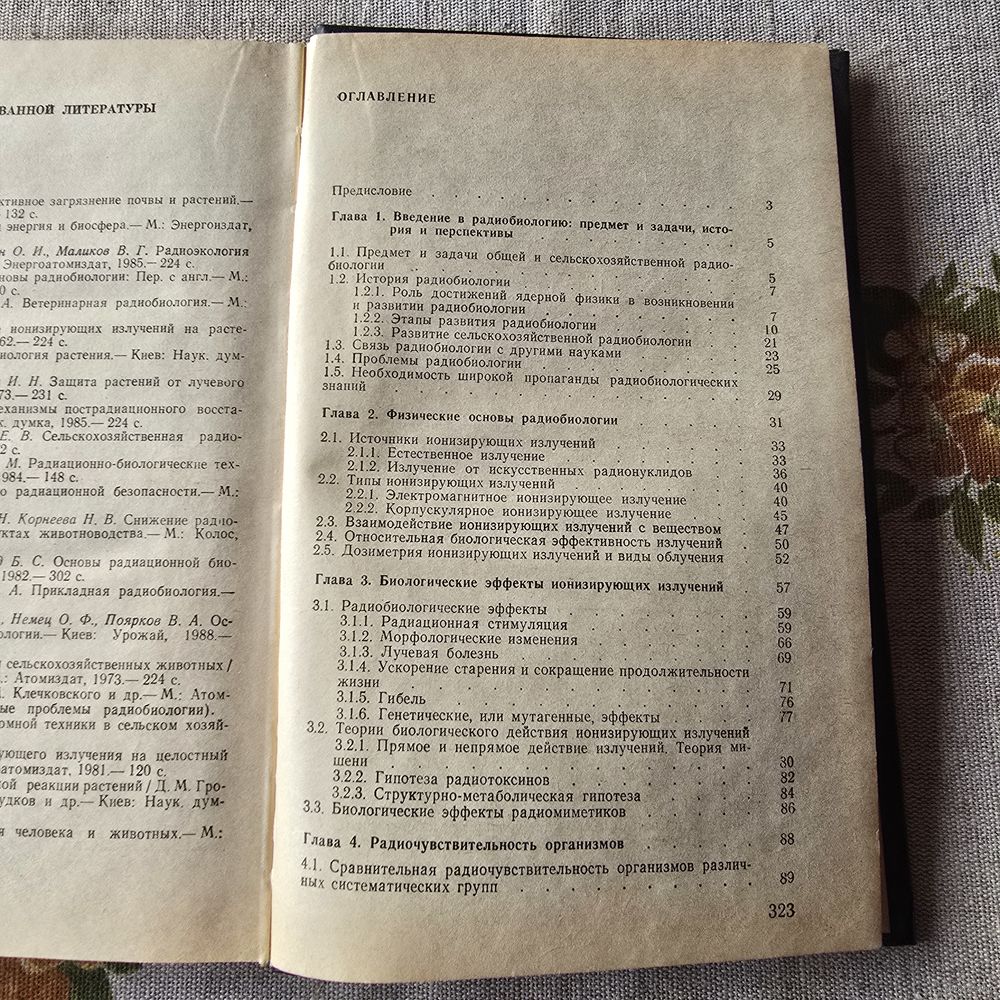 ВАННОЙ ЛИТЕРАТУРЫ
ктивное загрязнение почвы и растений.—
132 с.
я энергия и биосфера.— М.: Энергоиздат,
н О. И., Маликов В. Г. Радиоэкология
Энергоатомиздат, 1985.— 224 с.
новы радиобиологии: Пер. с англ.— М.:
0 с.
А. Ветеринарная радиобиология.— М.:
е ионизирующих излучений на расте-
62.— 224 с.
иология растения.— Киев: Наук. дум-
И. Н. Защита растений от лучевого
73.— 231 с.
еханизмы пострадиационного восста-
к. думка, 1985.— 224 с.
Е. В. Сельскохозяйственная радио-
2 с.
М. Радиационно-биологические тех-
1984.— 148 с.
о радиационной безопасности.— М.:
Н. Корнеева Н. В. Снижение радио-
уктах животноводства.— М.: Колос,
Б. С. Основы радиационной био-
1982.— 302 с.
А. Прикладная радиобиология.—
, Немец О. Ф., Поярков В. А. Ос-
ологии.— Киев: Урожай, 1988.—
я сельскохозяйственных животных /
.: Атомиздат, 1973.— 224 с.
М. Клечковского и др.— М.: Атом-
ные проблемы радиобиологии).
омной техники в сельском хозяй-
ующего излучения на целостный
оатомиздат, 1981.— 120 с.
ной реакции растений / Д. М. Гро-
удков и др.— Киев: Наук. дум-
я человека и животных.— М.:
ОГЛАВЛЕНИЕ
Предисловие . . . . . . . . . . . 3
Глава 1. Введение в радиобиологию: предмет и задачи, исто-
рия и перспективы . . . . . . . . . 5
1.1. Предмет и задачи общей и сельскохозяйственной радио-
биологии . . . . . . . . . . . 5
1.2. История радиобиологии . . . . . . . . 7
1.2.1. Роль достижений ядерной физики в возникновении
и развитии радиобиологии . . . . . . . 7
1.2.2. Этапы развития радиобиологии . . . . . 10
1.2.3. Развитие сельскохозяйственной радиобиологии . 21
1.3. Связь радиобиологии с другими науками . . . . 23
1.4. Проблемы радиобиологии . . . . . . . 25
1.5. Необходимость широкой пропаганды радиобиологических
знаний . . . . . . . . . . . 29
Глава 2. Физические основы радиобиологии . . . . 31
2.1. Источники ионизирующих излучений . . . . . 33
2.1.1. Естественное излучение . . . . . . 33
2.1.2. Излучение от искусственных радионуклидов . . 36
2.2. Типы ионизирующих излучений . . . . . . 40
2.2.1. Электромагнитное ионизирующее излучение . . 40
2.2.2. Корпускулярное ионизирующее излучение . . 45
2.3. Взаимодействие ионизирующих излучений с веществом . 47
2.4. Относительная биологическая эффективность излучений . 50
2.5. Дозиметрия ионизирующих излучений и виды облучения . 52
Глава 3. Биологические эффекты ионизирующих излучений . 57
3.1. Радиобиологические эффекты . . . . . . 59
3.1.1. Радиационная стимуляция . . . . . . 59
3.1.2. Морфологические изменения . . . . . 66
3.1.3. Лучевая болезнь . . . . . . . . 69
3.1.4. Ускорение старения и сокращение продолжительности
жизни . . . . . . . . . . . 71
3.1.5. Гибель . . . . . . . . . . 76
3.1.6. Генетические, или мутагенные, эффекты . . . 77
3.2. Теории биологического действия ионизирующих излучений
3.2.1. Прямое и непрямое действие излучений. Теория ми-
шени . . . . . . . . . . . 30
3.2.2. Гипотеза радиотоксинов . . . . . . 82
3.2.3. Структурно-метаболическая гипотеза . . . . 84
3.3. Биологические эффекты радиомиметиков . . . . 86
Глава 4. Радиочувствительность организмов . . . . 88
4.1. Сравнительная радиочувствительность организмов различ-
ных систематических групп . . . . . . . 89
323